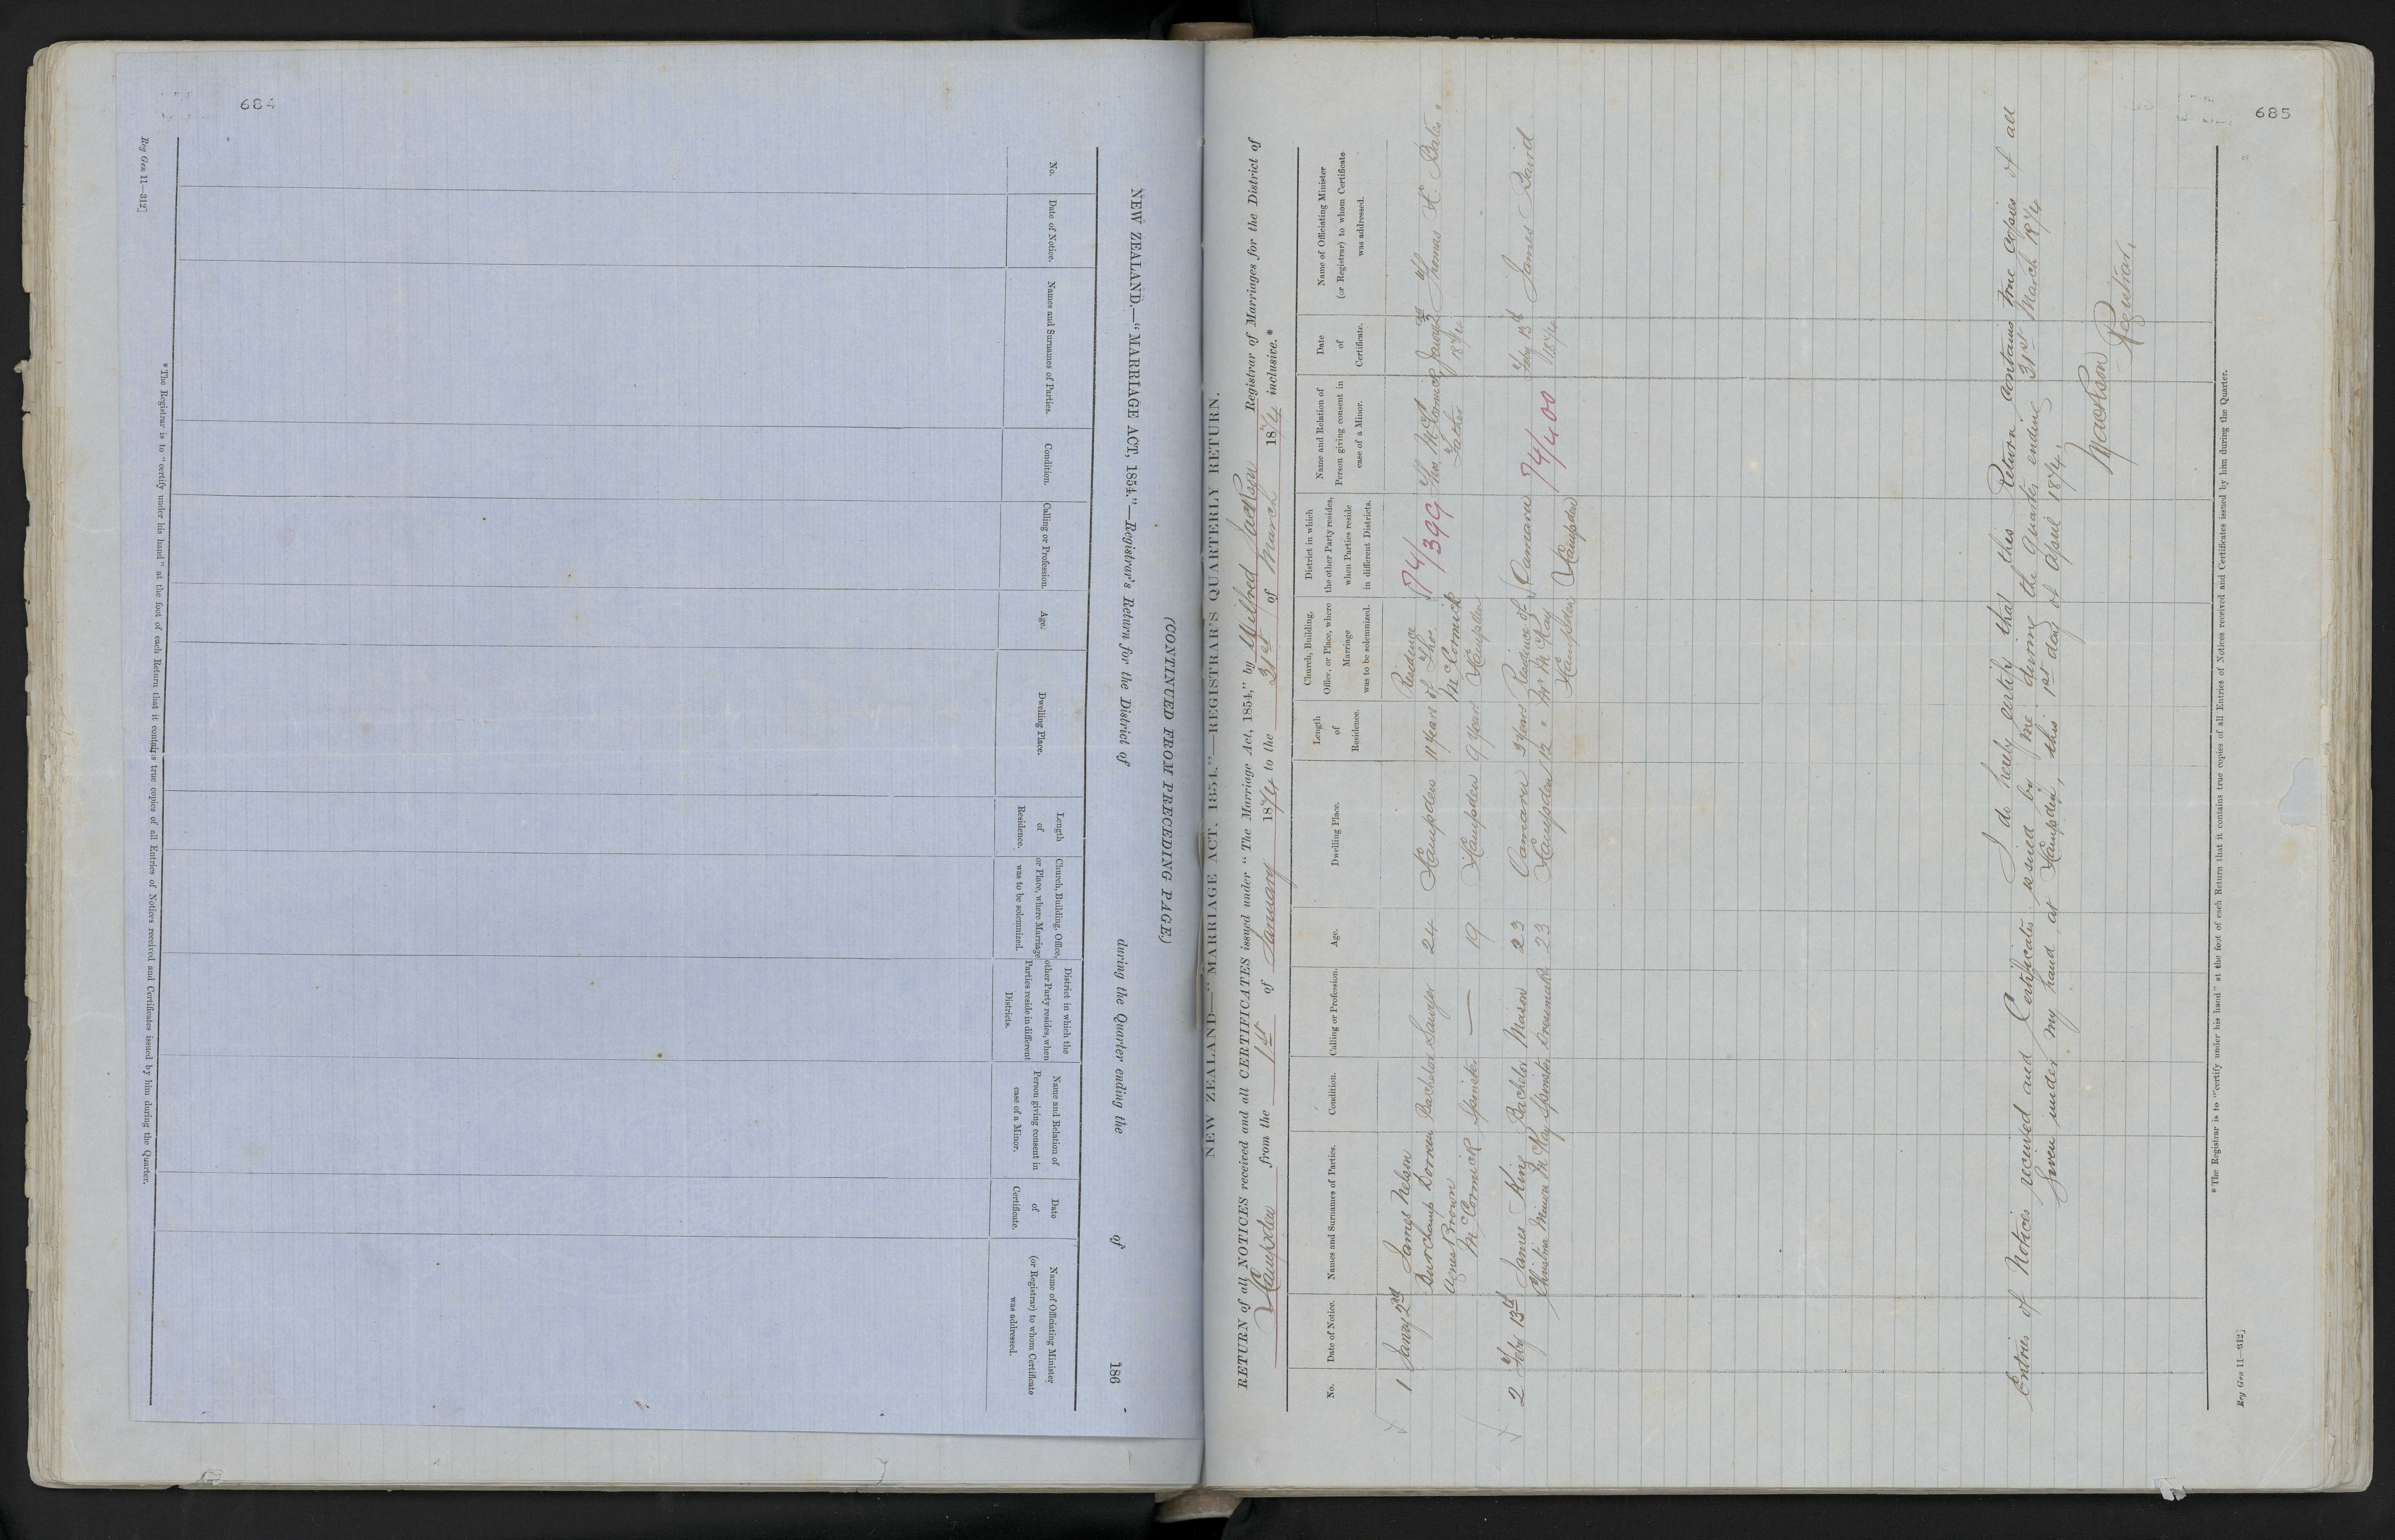 684
NEW ZEALAND.—"MARRIAGE ACT, 1854."—Registrar's Return for the District of during the Quarter ending the of 186
(CONTINUED FROM PRECEDING PAGE.)
No.
Date of Notice.
Names and Surnames of Parties.
Condition.
Calling or Profession.
Age.
Dwelling Place.
Length of Residence.
Church, Building, Office, or Place, where Marriage was to be solemnized.
District in which the other Party resides, when Parties reside in different Districts.
Name and Relation of Person giving consent in case of a Minor.
Date of Certificate.
Name of Officiating Minister (or Registrar) to whom Certificate was addressed.
* The Registrar is to "certify under his hand" at the foot of each Return that it contains true copies of all Entries of Notices received and Certificates issued by him during the Quarter.
Reg Gen 11—312]
685
NEW ZEALAND—"MARRIAGE ACT, 1854."—REGISTRAR'S QUARTERLY RETURN.
RETURN of all NOTICES received and all CERTIFICATES issued under "The Marriage Act, 1854," by Wilfred Jackson Registrar of Marriages for the District of
Hampden from the 1st of January 1874 to the 31st of March 1874 inclusive.*
No.
Date of Notice.
Names and Surnames of Parties.
Condition.
Calling or Profession.
Age.
Dwelling Place.
Length of Residence.
Church, Building, Office, or Place, where Marriage was to be solemnized.
District in which the other Party resides, when Parties reside in different Districts.
Name and Relation of Person giving consent in case of a Minor.
Date of Certificate.
Name of Officiating Minister (or Registrar) to whom Certificate was addressed.
1 Janry 2nd James Nelson Residence 74/399 Janry 2nd
Bachelor 24 Hampden 11 Years of Thos. Thos. McCormick 1874 Thomas
Agnes Brown McCormick Father
McCormick Spinster — 19 Hampden 9 Years Hampden
2 Feby 13th James King Bachelor Mason 23 Oamaru 3 Years Residence of Oamaru 74/400 Feby 13th James Baird
Christina McKay Spinster Dressmaker 23 Hampden 12 " Mr McKay Hampden 1874
Hampden
I do hereby certify that this Return contains true copies of all
Entries of Notices received and Certificates issued by me during the Quarter ending 31st March 1874
Given under my hand at Hampden, this 1st day of April 1874.
WJackson
Registrar.
* The Registrar is to "certify under his hand" at the foot of each Return that it contains true copies of all Entries of Notices received and Certificates issued by him during the Quarter.
Reg Gen 11—312]